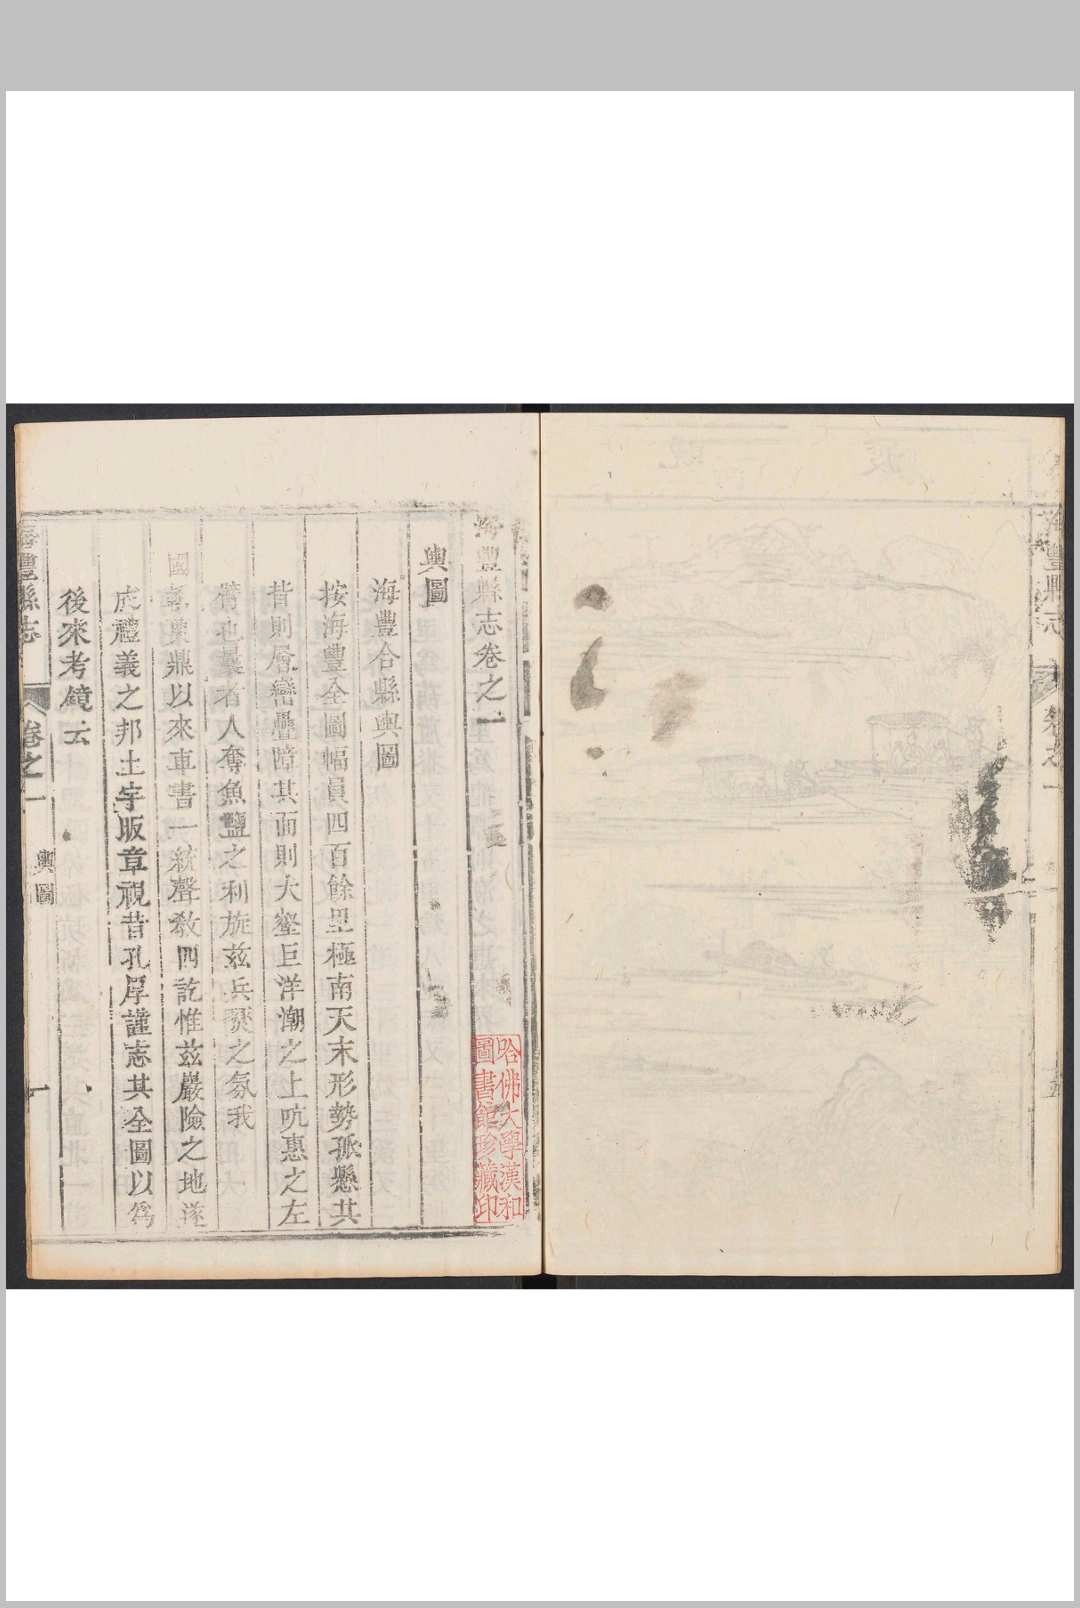 海豐縣志卷之一
輿圖
海豐合縣輿圖
按海豐全圖幅員四百餘里極南天末形勢孤懸其
昔則層巒疊障其面則大壑巨洋潮之上吭惠之左
臂也曩者人奪魚鹽之利旋兹兵燹之氛我
國朝奠鼎以來車書一統聲敎四訖惟兹巖險之地遂
成禮義之邦土宇版章視昔孔厚謹志其全圖以爲
後來考鏡云
海豐縣志
卷之一
輿圖
一
哈佛大學漢和
圖書館珍藏印